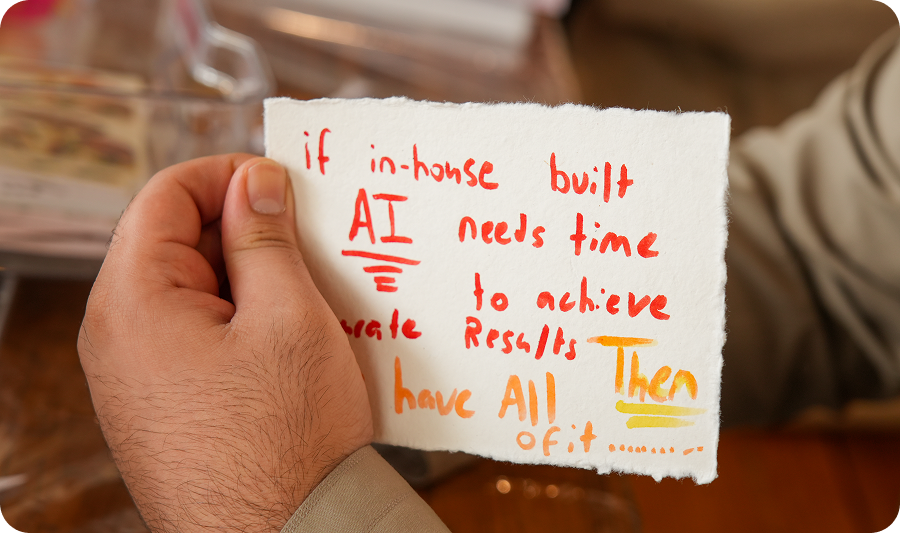 if in-house built
AI needs time
to achieve
Results Then
have All
of it..........